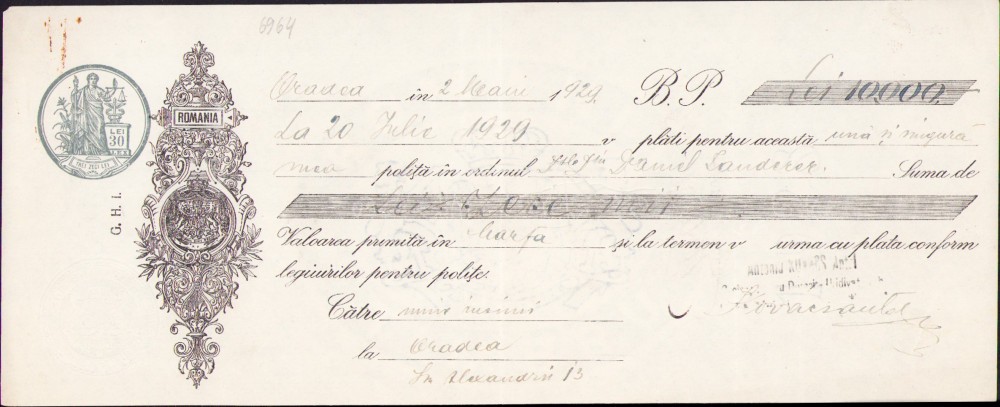 6964
Oradea în 2 Maiu 1929 B. P. Lei 10.000.
ROMANIA
La 20 Iulie 1929 v plăti pentru această ună și singură
LEI
30
mea poliță în ordinul Daniel Sanderer. Suma de
G. H. I.
Lei Zece mii
Valoarea primită în Marfa și la termen v urma cu plata conform
legiuirilor pentru polițe.
Către
la Oradea
Str Alexandri 13